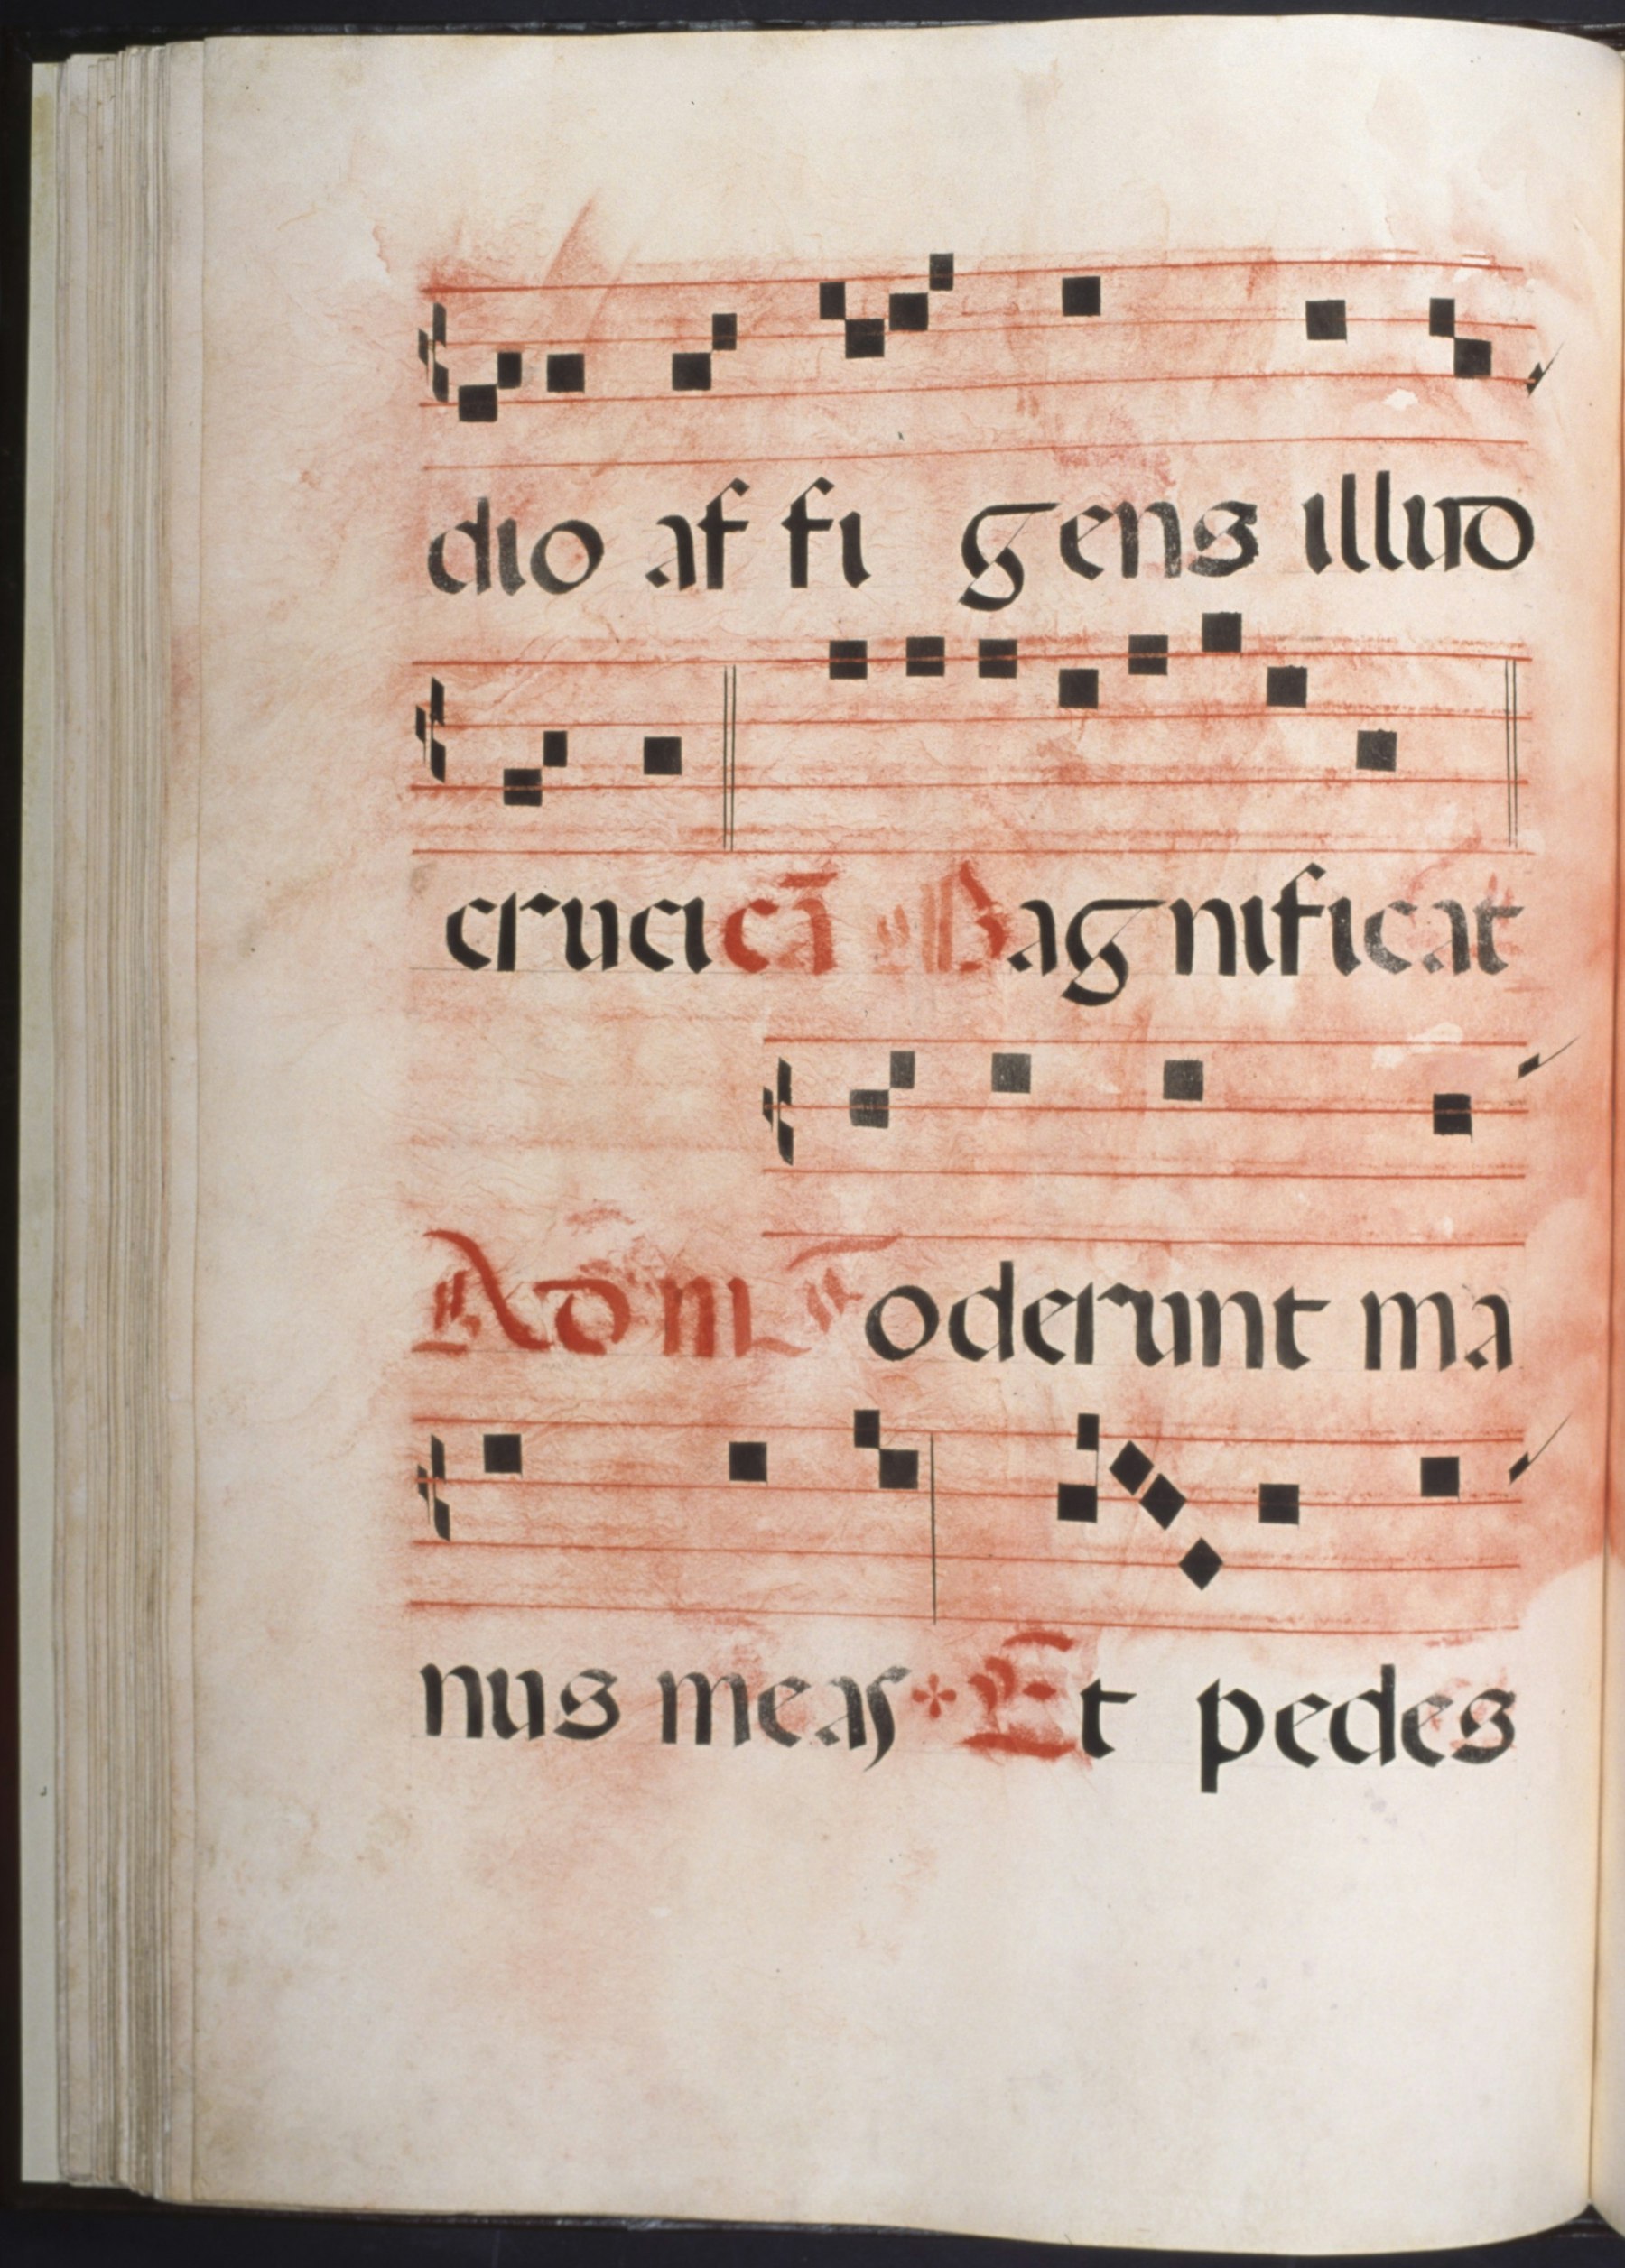 dio af fi gens illud
cruci cā Magnificat
Ad m Foderunt ma
nus meas Et pedes